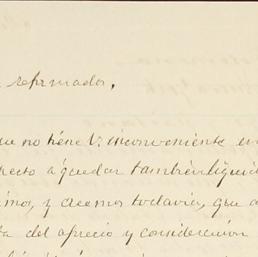 refrmados,
que no tiene V. inconveniente en
recto á quedar también liquid
imos, y deemos todavía, que a
ta del aprecio y consideración